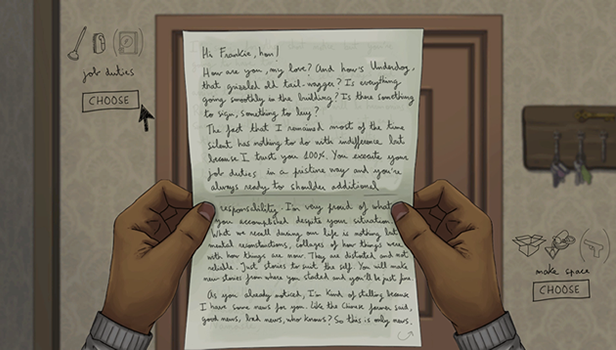 Hi Frankie, hon!
How are you, my love? And how's Underdog,
that grizzled old tail-wagger? Is everything
going smoothly in the building? Is there something
to sign, something to buy?
The fact that I remained most of the time
silent has nothing to do with indifference but
because I trust you 100%. You execute your
job duties in a pristine way and you're
always ready to shoulder additional
responsibility. I'm very proud of what
you accomplished despite your situation.
What we recall during our life is nothing but
mental reconstructions, collages of how things were
with how things are now. They are distorted and not
reliable. Just stories to suit the self. You will make
new stories from where you started and you'll be just fine.
As you already noticed, I'm kind of stalling because
I have some news for you. Like the Chinese farmer said,
good news, bad news, who knows? So this is only news.
job duties
CHOOSE
make space
CHOOSE